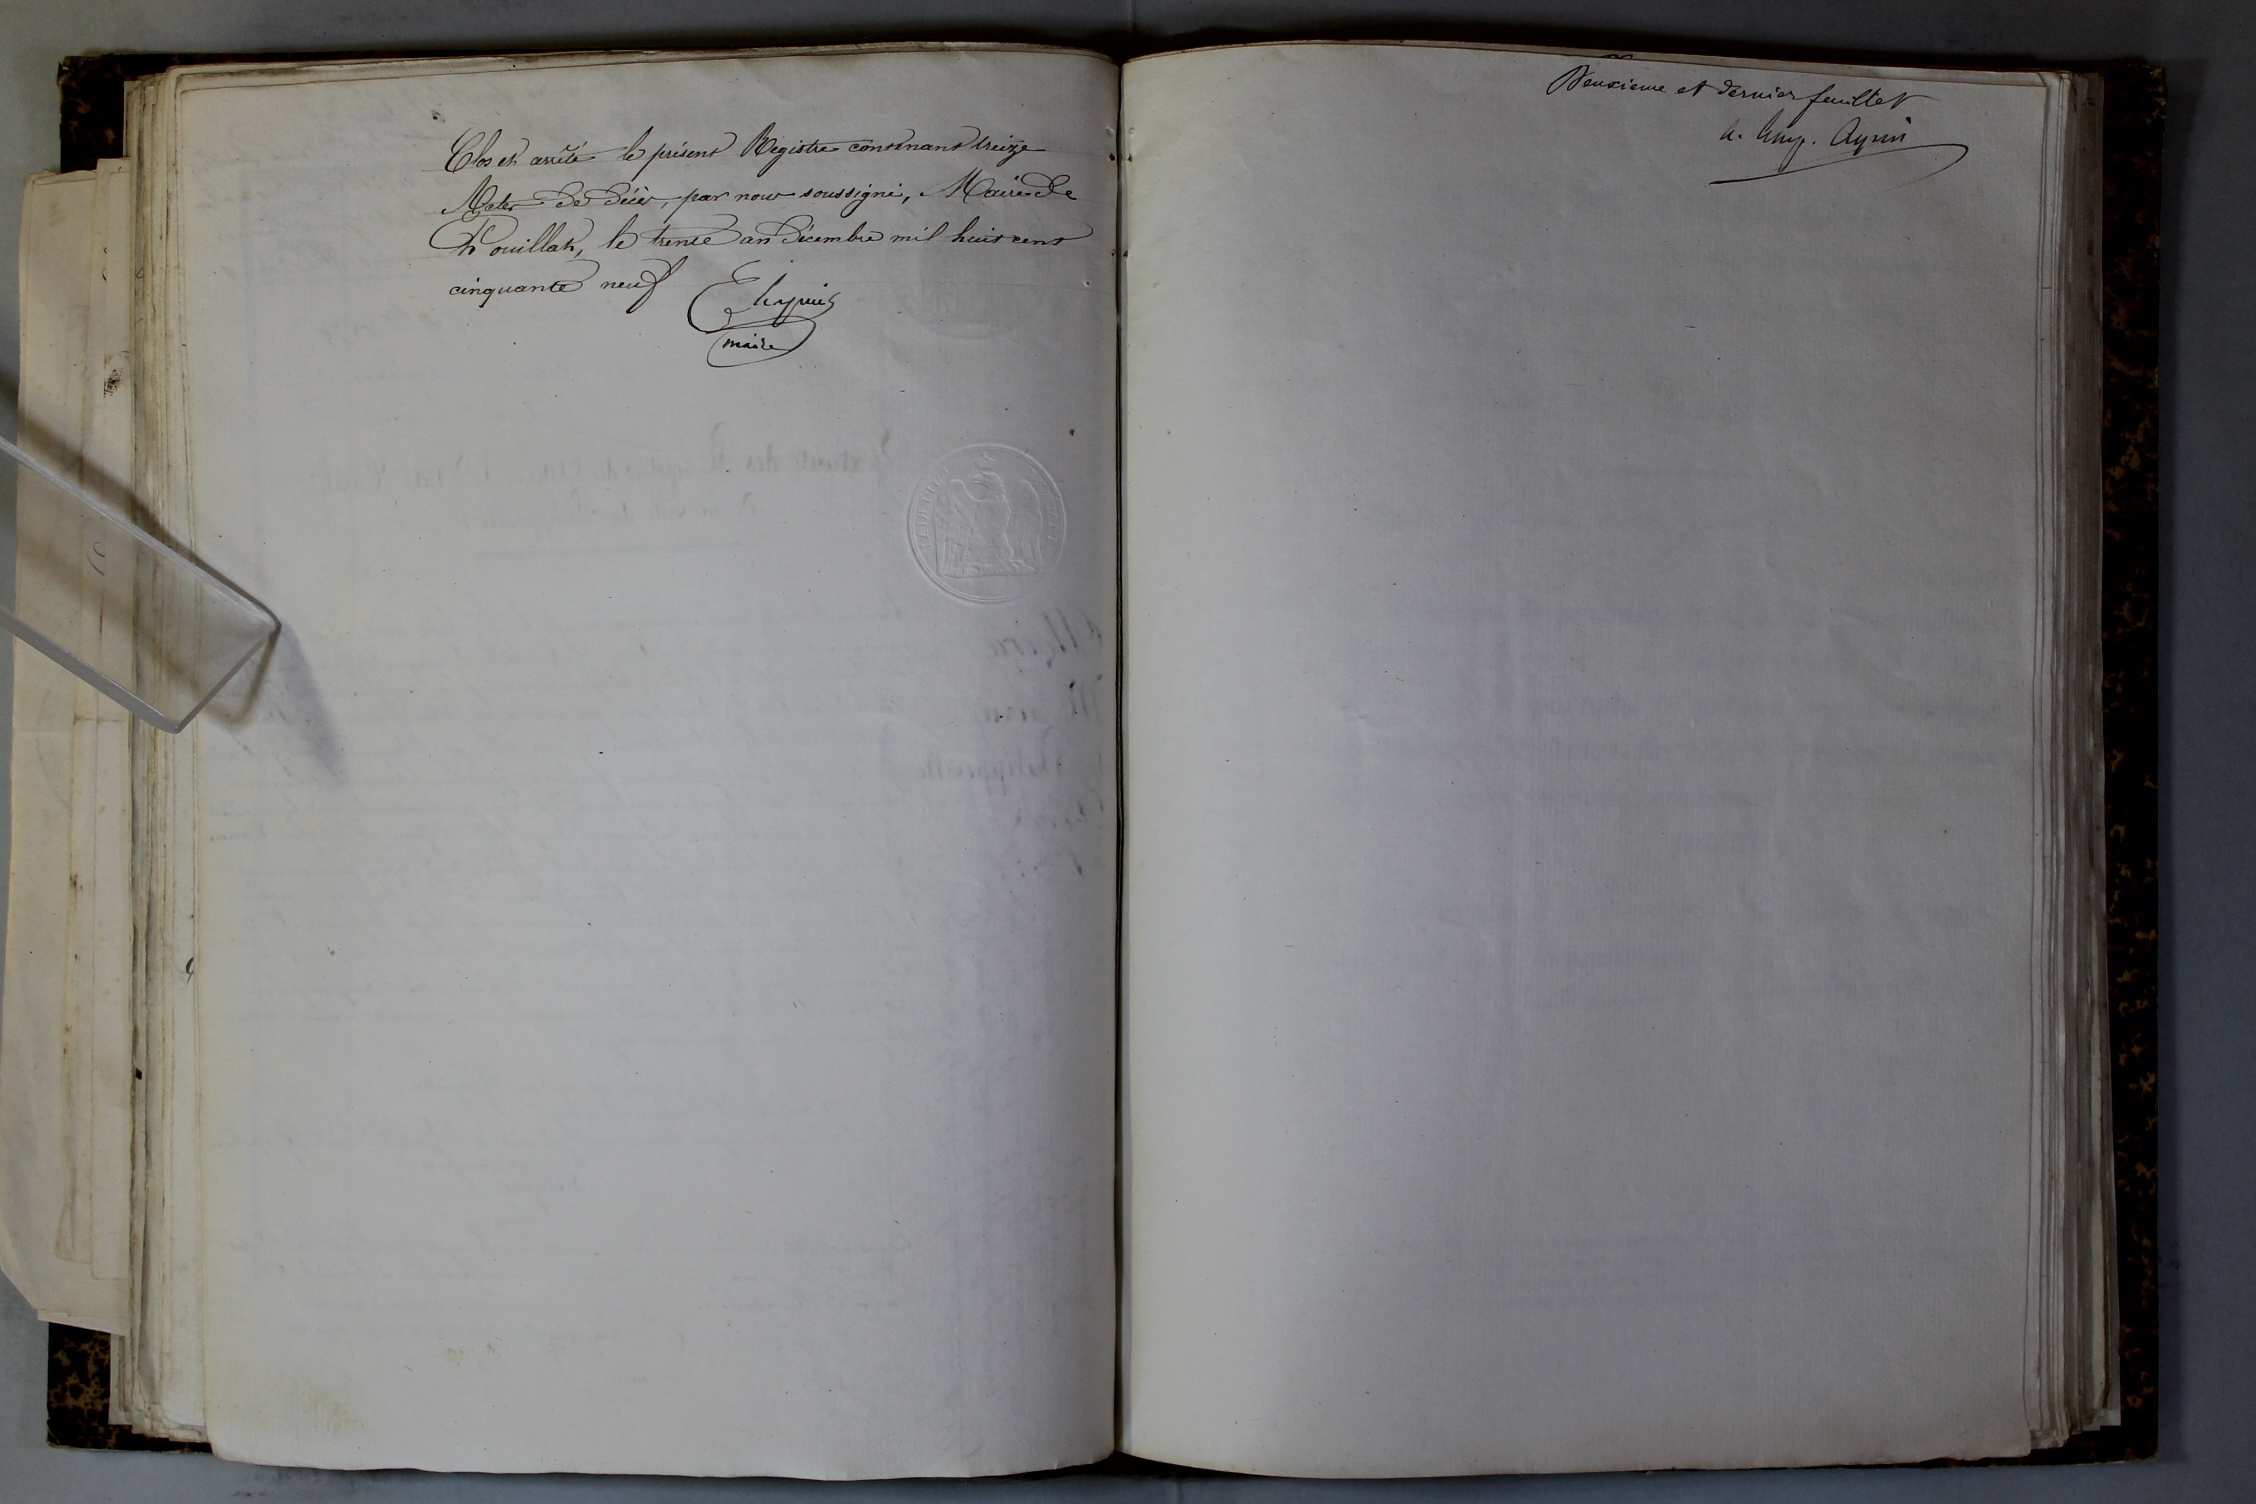 Clos et arrêté le présent Registre contenant treize
Actes de décès, par nous soussigné, Maire de
Thouillat, le trente un Décembre mil huit cent
cinquante neuf
maire
Deuxieme et dernier feuillet